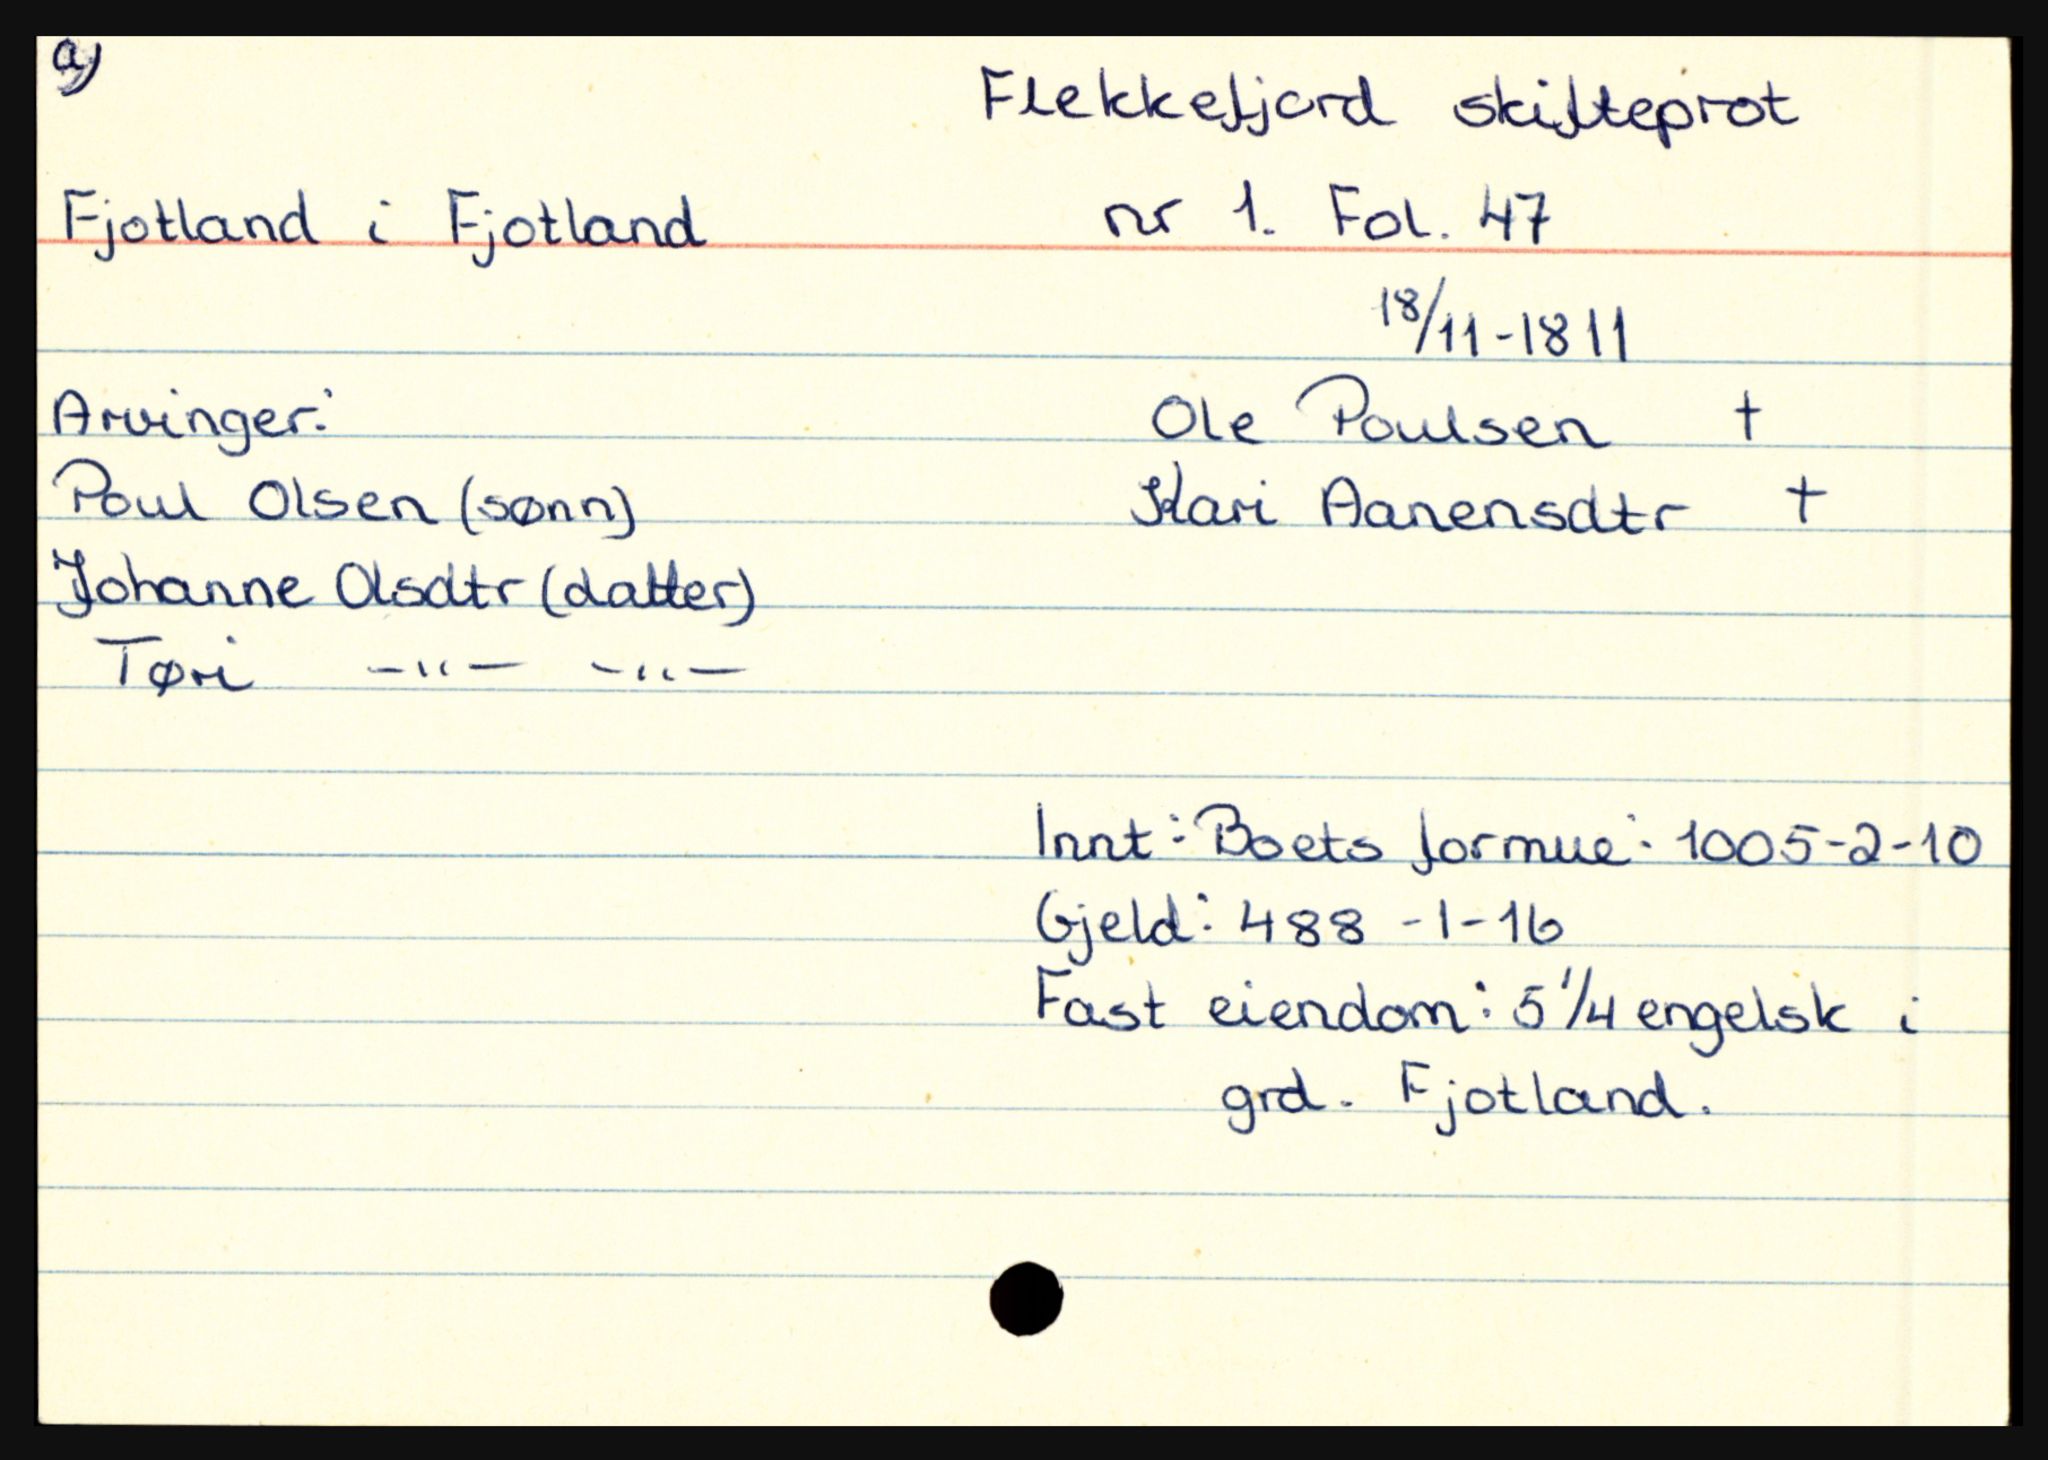 a)
Flekkefjord skifteprot
Fjotland i Fjotland nr 1. Fol. 47
18/11-1811
Arvinger: Ole Poulsen †
Poul Olsen (sønn) Kari Aanensdtr †
Johanne Olsdtr (datter)
Tøri -"- -"-
Innt: Boets formue: 1005-2-10
Gjeld: 488 -1-16
Fast eiendom: 5 1/4 engelsk i
grd. Fjotland.